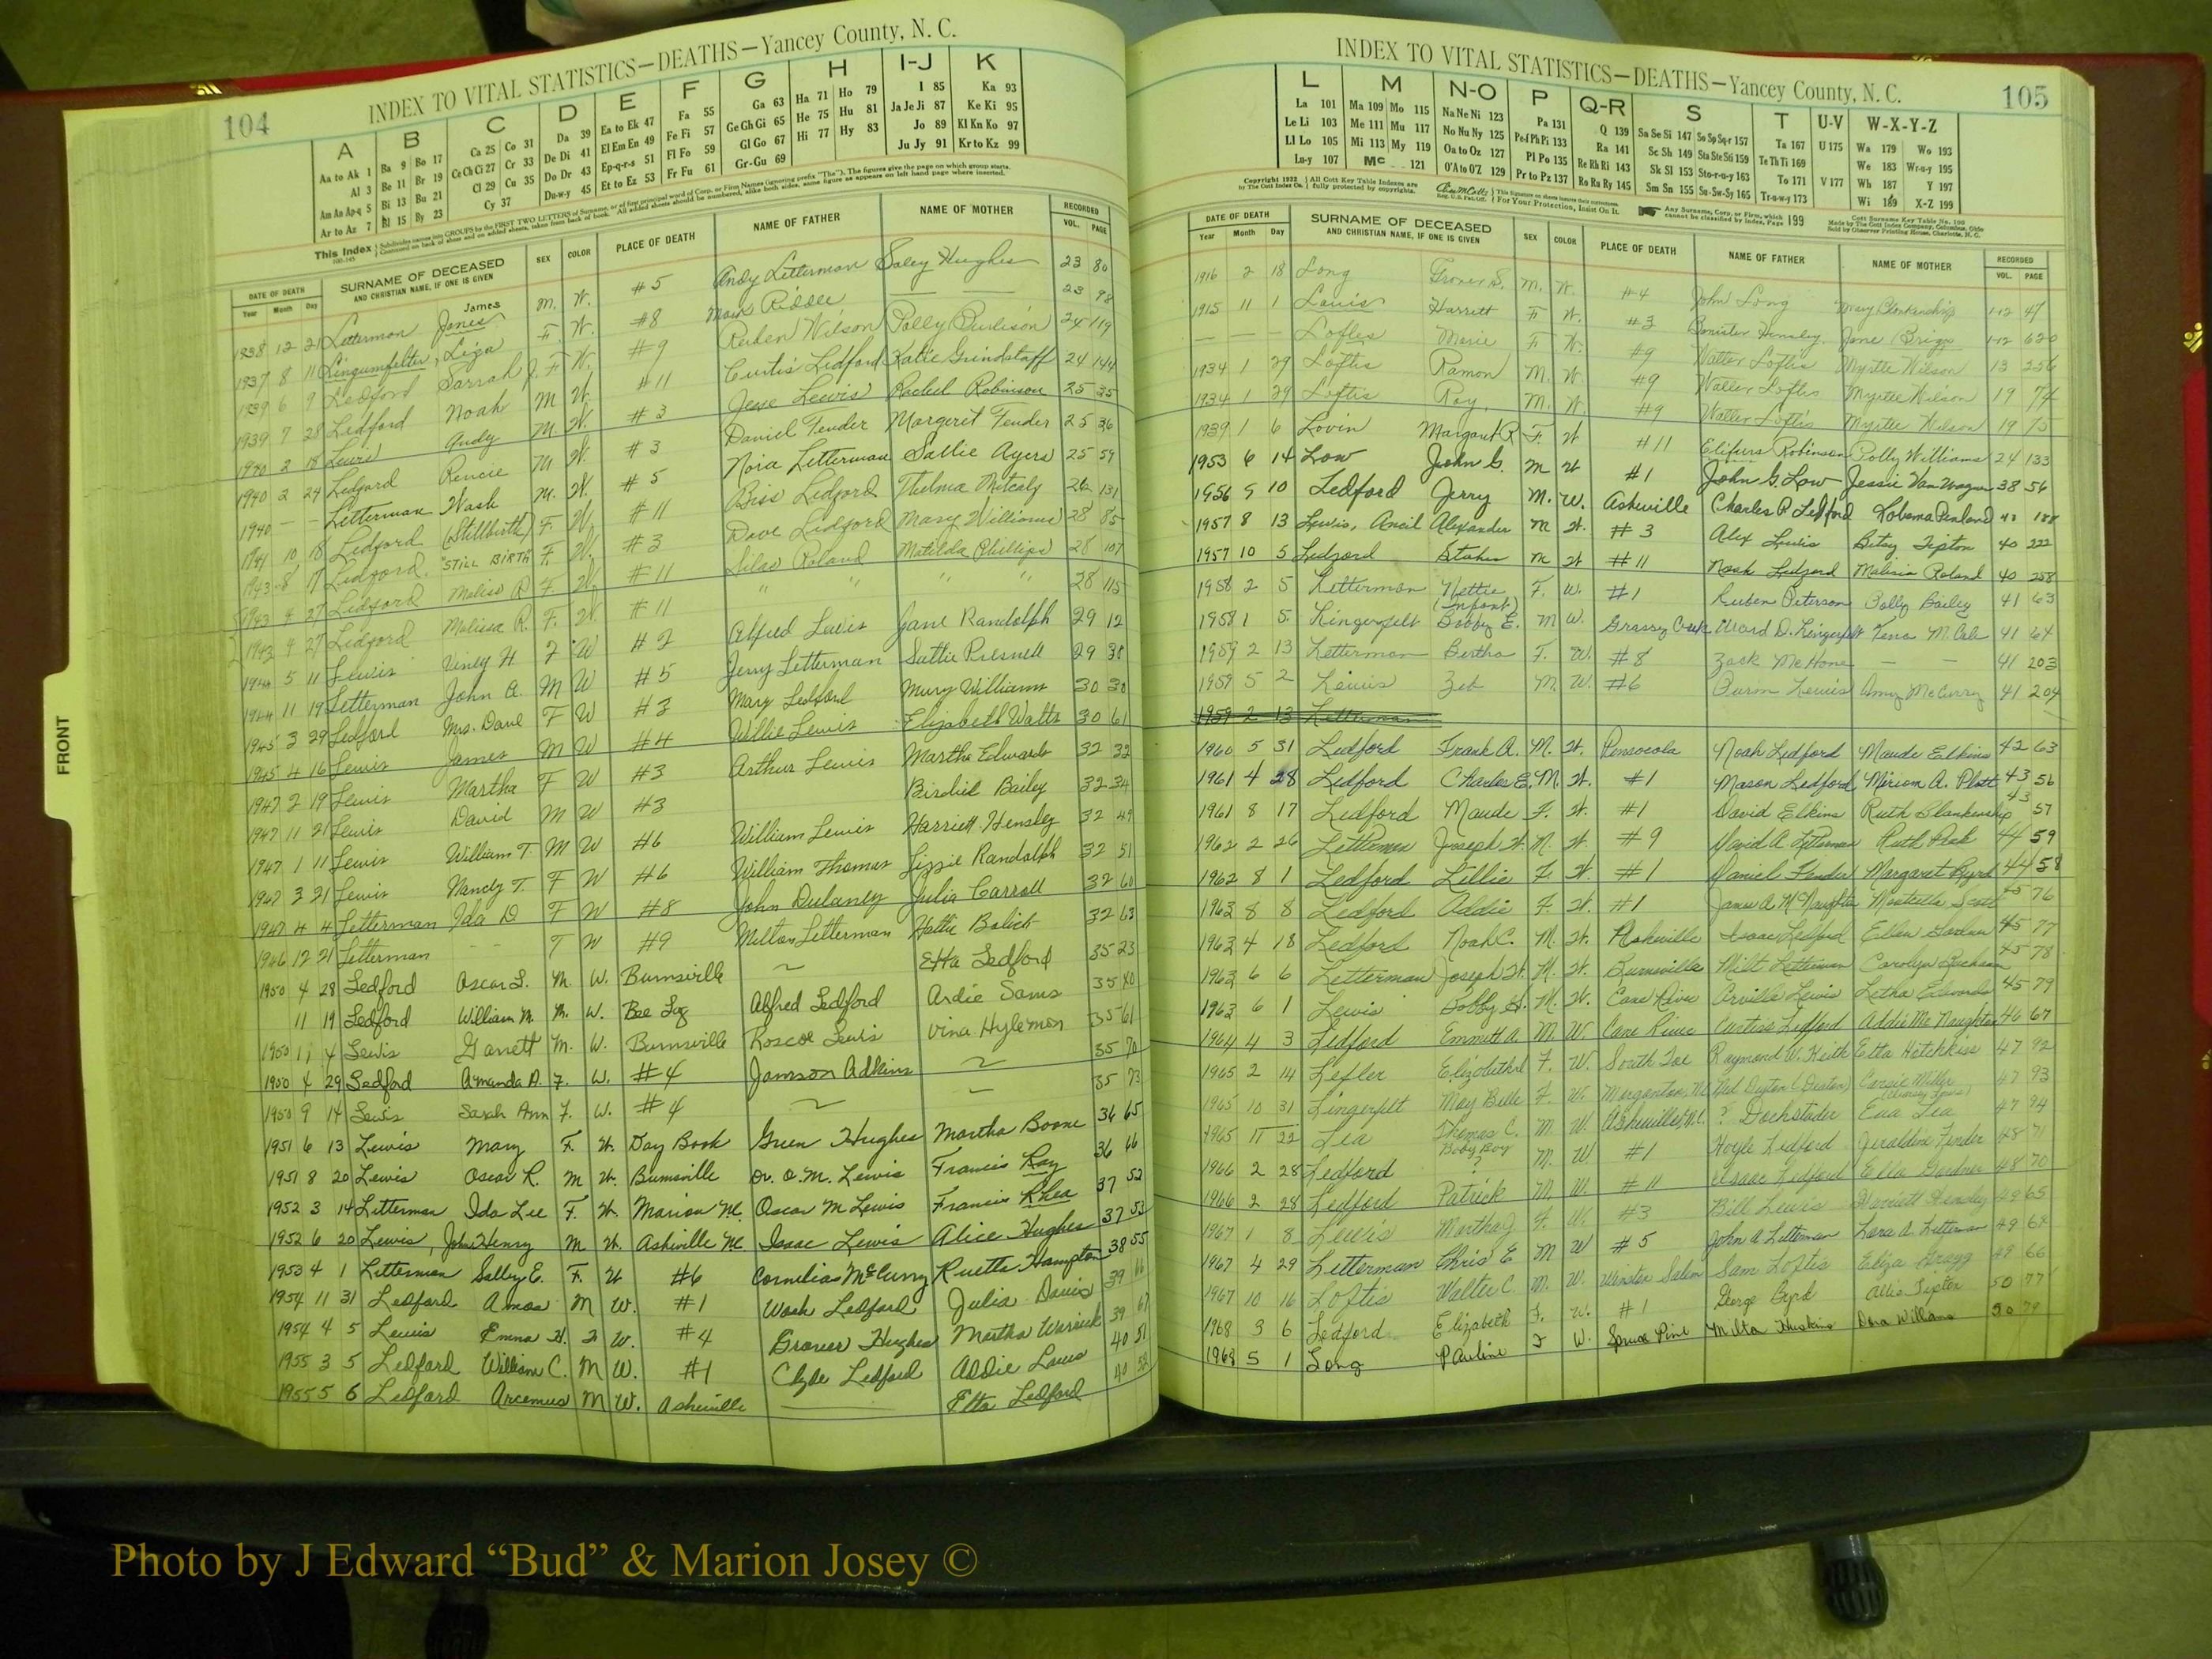 104
INDEX TO VITAL STATISTICS—DEATHS—Yancey County, N. C.
A B C D E F G H I-J K
Aa to Ak 1 Ba 9 Bo 17 Ca 25 Co 31 Da 39 Ea to Ek 47 Fa 55 Ga 63 Ha 71 Ho 79 I 85 Ka 93
Al 3 Be 11 Br 19 Ce Ch Ci 27 Cr 33 De Di 41 El Em En 49 Fe Fi 57 Ge Gh Gi 65 He 75 Hu 81 Ja Je Ji 87 Ke Ki 95
Am An Ap-q 5 Bi 13 Bu 21 Cl 29 Cu 35 Do Dr 43 Ep-q-r-s 51 Fl Fo 59 Gl Go 67 Hi 77 Hy 83 Jo 89 Kl Kn Ko 97
Ar to Az 7 Bl 15 By 23 Cy 37 Du-w-y 45 Et to Ez 53 Fr Fu 61 Gr-Gu 69 Ju Jy 91 Kr to Kz 99
DATE OF DEATH SURNAME OF DECEASED SEX COLOR PLACE OF DEATH NAME OF FATHER NAME OF MOTHER RECORDED
Year Month Day AND CHRISTIAN NAME, IF ONE IS GIVEN VOL. PAGE
James
1938 12 21 Letterman Jones M. W. #5 Andy Letterman Saley Hughes 23 80
1937 8 11 Lingumfelter, Liza F. W. #8 23 98
1939 6 9 Ledford Sarrah J. F. W. #9 Reuben Wilson Polly Burlison 24 119
1939 7 28 Ledford Noah M W. #11 Curtis Ledford Katie Grindstaff 24 144
1940 2 18 Lewis Andy M W. #3 Jesse Lewis Rachel Robinson 25 35
1940 2 24 Ledford Rencie M W. #3 Daniel Fender Margeret Fender 25 36
1940 – – Letterman Wash M. W. #5 Nora Letterman Sallie Ayers 25 59
1941 10 18 Ledford (Stillbirth) F. W. #11 Biss Ledford Thelma Metcalf 26 131
1943 8 17 Ledford "STILL BIRTH" F. W. #3 Dave Ledford Mary Williams 28 85
1943 4 27 Ledford Meliss R F. W. #11 Silas Roland Matilda Phillips 28 107
1943 4 27 Ledford Melissa R. F. W. #11 " " " " 28 115
1944 5 11 Lewis Viney H F W #2 Alfred Lewis Jane Randolph 29 12
1944 11 19 Letterman John A. M W #5 Jerry Letterman Sallie Presnell 29 38
1945 3 29 Ledford Mrs. Dave F W #3 Mary Ledford Mury Williams 30 30
1945 4 16 Lewis James M W #4 Willie Lewis Elizabeth Watts 30 61
1947 2 19 Lewis Martha F W #3 Arthur Lewis Martha Edwards 32 32
1947 11 21 Lewis David M W #3 Birdie Bailey 32 34
1947 1 11 Lewis William T M W #6 William Lewis Harriett Hensley 32 49
1947 3 21 Lewis Nandy T. F W #6 William Thomas Lizzie Randolph 32 51
1947 4 4 Letterman Ida D F W #8 John Dulaney Julia Carroll 32 60
1946 12 21 Letterman -- T W #9 Melton Letterman Hattie 32 63
1950 4 28 Ledford Oscar L. M. W. Burnsville ~ Etta Ledford 35 23
11 19 Ledford William M. M. W. Bee Log Alfred Ledford Ardie Sams 35 40
1950 11 4 Lewis Garrett M. W. Burnsville Roscoe Lewis Vina Hylemon 35 61
1950 4 29 Ledford Amanda A. F. W. #4 Jamson Adkins ~ 35 70
1950 9 14 Lewis Sarah Ann F. W. #4 ~ – 35 73
1951 6 13 Lewis Mary F. W. Day Book Green Hughes Martha Boone 36 65
1951 8 20 Lewis Oscar R. M W. Burnsville Dr. O. M. Lewis Francis Ray 36 66
1952 3 14 Letterman Ida Lee F. W. Marion N.C. Oscar M Lewis Francis Rhea 37 52
1952 6 20 Lewis, John Henry M W. Asheville N.C. Isaac Lewis Alice Hughes 37 53
1953 4 1 Letterman Salley E. F. W #6 Cornelias McCurry Ruetta Hampton 38 55
1954 11 31 Ledford Amos M W. #1 Wash Ledford Julia Davis 39 66
1954 4 5 Lewis Emma H. F W. #4 Grover Hughes Martha Warrick 39 67
1955 3 5 Ledford William C. M W. #1 Clyde Ledford Addie Laws 40 51
1955 5 6 Ledford Arcemus M W. Asheville Etta Ledford 40 52
FRONT
INDEX TO VITAL STATISTICS—DEATHS—Yancey County, N. C.
105
L M N-O P Q-R S T U-V W-X-Y-Z
La 101 Ma 109 Mo 115 Na Ne Ni 123 Pa 131 Q 139 Sa Se Si 147 So Sp Sq-r 157 Ta 167 U 175 Wa 179 Wo 193
Le Li 103 Me 111 Mu 117 No Nu Ny 125 Pe-f Ph Pi 133 Ra 141 Sc Sh 149 Sta Ste Sti 159 Te Th Ti 169 We 183 Wr-u-y 195
Ll Lo 105 Mi 113 My 119 Oa to Oz 127 Pl Po 135 Re Rh Ri 143 Sk Sl 153 Sto-r-u-y 163 To 171 V 177 Wh 187 Y 197
Lu-y 107 Mc 121 O'A to O'Z 129 Pr to Pz 137 Ro Ru Ry 145 Sm Sn 155 Su-Sw-Sy 165 Tr-u-w-y 173 Wi 189 X-Z 199
DATE OF DEATH SURNAME OF DECEASED SEX COLOR PLACE OF DEATH NAME OF FATHER NAME OF MOTHER RECORDED
Year Month Day AND CHRISTIAN NAME, IF ONE IS GIVEN VOL. PAGE
1916 2 18 Long Grover S. M. W. #4 John Long Mary Blankenship 1-12 47
1915 11 1 Lauis Harrett F W. #3 Banister Hensley Jane Briggs 1-12 620
– – – Lofles Marie F W. #9 Walter Loftis Myrtle Wilson 13 256
1934 1 29 Loftis Ramon M. W. #9 Walter Loftis Myrtle Wilson 19 74
1934 1 29 Loftis Roy, M. W. #9 Walter Loftis Myrtle Wilson 19 75
1939 1 6 Lovin Margaret R F. W #11 Robinson Polly Williams 24 133
1953 6 14 Low John G. M W #1 John G. Low Jessie Van Wagner 38 56
1956 9 10 Ledford Jerry M. W. Asheville Charles P. Ledford Penland
1957 8 13 Lewis, Ancil Alexander M W. #3 Alex Lewis Betsy Tipton 40 222
1957 10 5 Ledford M W #11 Noah Ledford Malissia Roland 40 258
1958 2 5 Letterman Nettie F. W. #1 Reuben Peterson Polly Bailey 41 63
1958 1 5 Lingerfelt (Infant) Bobby E. M W. Grassy Creek Ward D. Lingerfelt Tena 41 64
1959 2 13 Letterman Bertha F. W. #8 Zack McHone – – 41 203
1959 5 2 Lewis Zeb M. W. #6 Lewis Amy McCurry 41 204
1959 2 13 Letterman
1960 5 31 Ledford Frank A. M. W. Pensacola Noah Ledford Maude Elkins 42 63
1961 4 28 Ledford Charles E. M. W. #1 Mason Ledford Miriom A. Platt 43 56
1961 8 17 Ledford Maude F. W. #1 David Elkins Ruth Blankenship 43 57
1962 2 26 Letterman Joseph W. M. W #9 David A. Letterman Ruth Peak 44 59
1962 8 1 Ledford Lillie F. W. #1 Daniel Fender Margaret Byrd 44 58
1963 8 8 Ledford Addie F. W. #1 James A. McNaughton Scott 45 76
1963 4 18 Ledford Noah C. M. W. Asheville Isaac Ledford Ellen 45 77
1963 6 6 Letterman Joseph W. M. W. Burnsville Milt Letterman Carolyn 45 78
1963 6 1 Lewis Bobby M. W. Cane River Arville Lewis Letha Edwards 45 79
1964 4 3 Ledford Emmett A. M. W. Cane River Curtiss Ledford Addie McNaughton 46 67
1965 2 14 Lefler Elizabeth F. W. South Toe Raymond W. Keith Etta Hotchkiss 47 92
1965 10 31 Lingerfelt May Belle F W. Morganton, N.C. 47 93
1965 11 22 Lea Thomas C. M W. Asheville N.C. ? Dockstader Eua Lea 47 94
1966 2 28 Ledford Baby Boy ? M. W #1 Hoyle Ledford Jeraldine Fender 48 71
1966 2 28 Ledford Patrick M W. #11 Isaac Ledford Ella Gardner 48 70
1967 1 8 Lewis Martha J F. W. #3 Bill Lewis Harriett Hensley 49 65
1967 4 29 Letterman Chris E M W #5 John A Letterman Letterman
1967 10 16 Loftis Walter C. M. W. Winston Salem Sam Loftis Eliza Gragg 49 66
1968 3 6 Ledford Elizabeth F. W. #1 George Byrd Allie Tipton 50 77
1968 5 1 Long Pauline F W. Spruce Pine Milta Huskins Dora Williams
Photo by J Edward “Bud” & Marion Josey ©